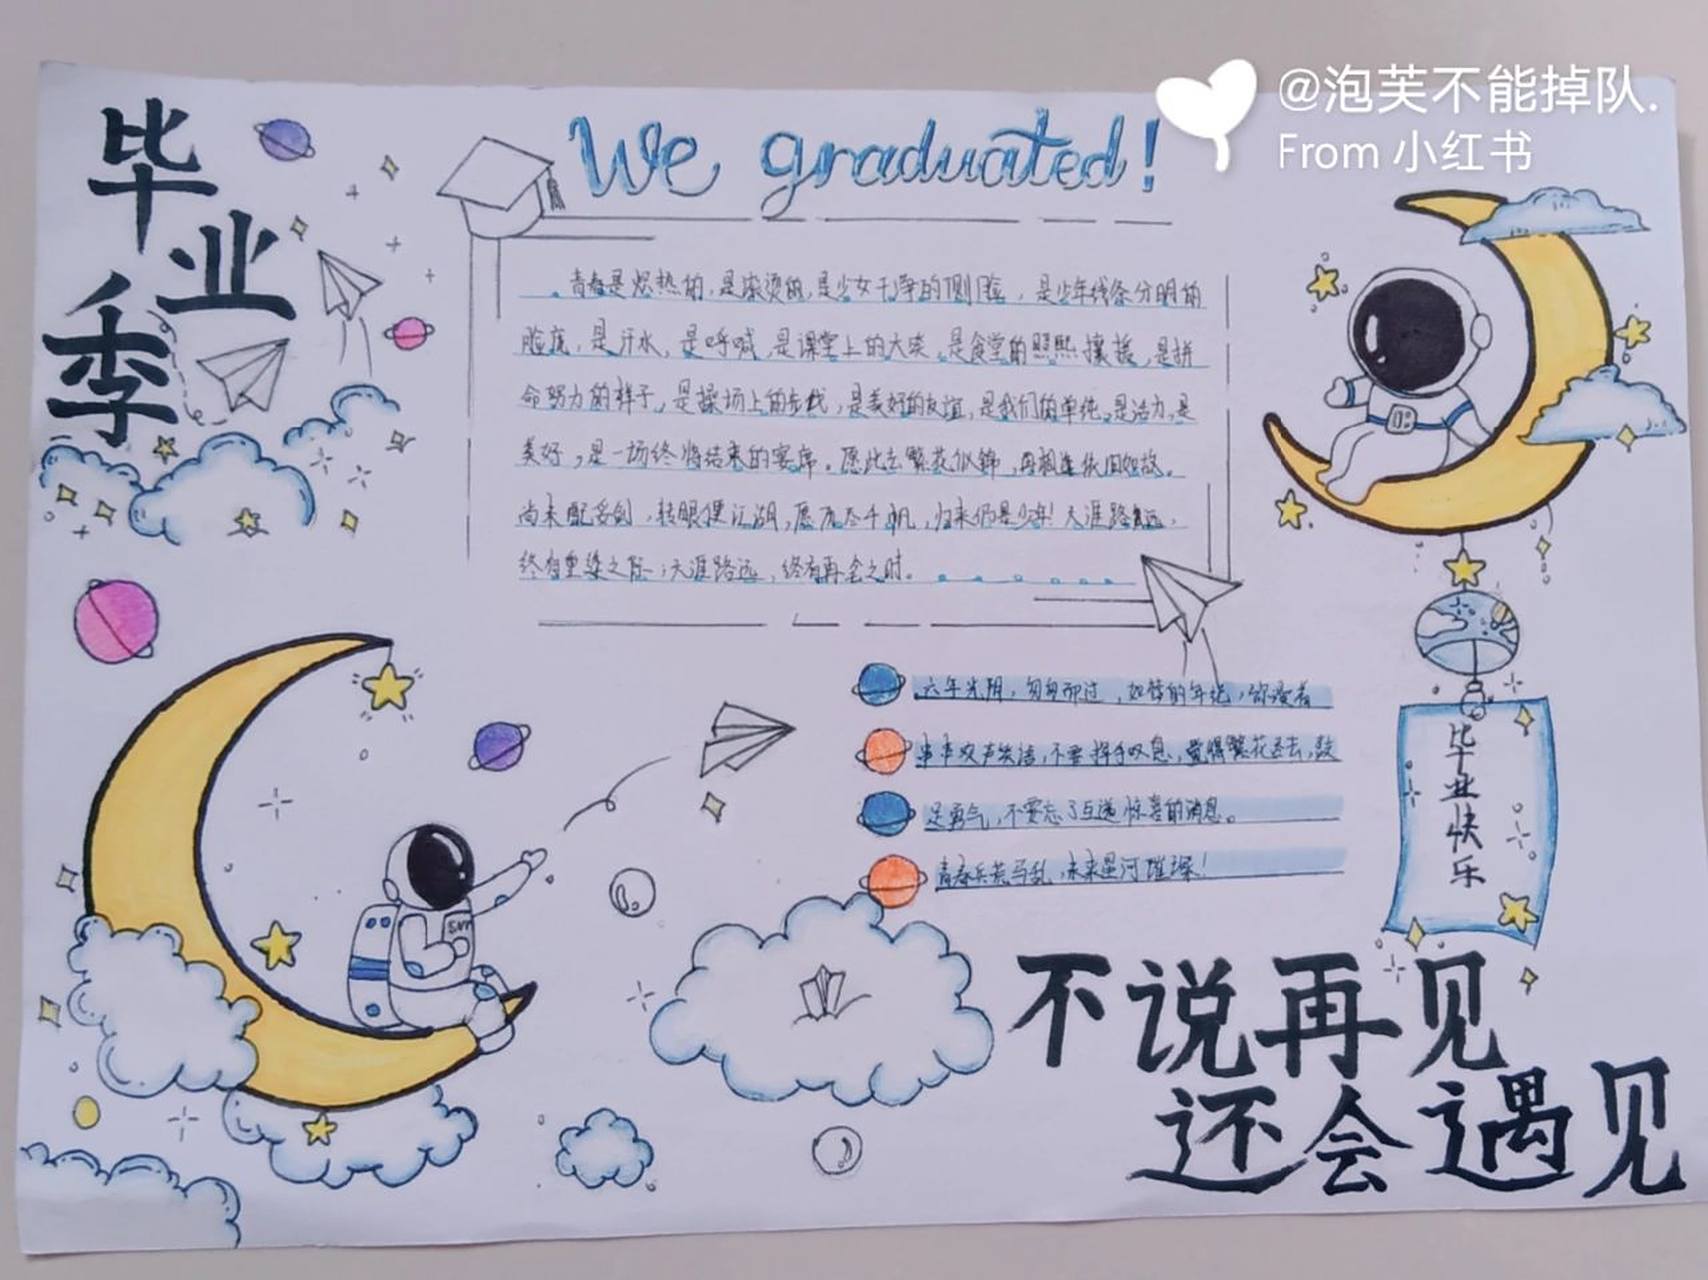 @泡芙不能掉队.
From 小红书
毕业季
We graduated!
青春是炽热的,是滚烫的,是少女干净的侧脸,是少年线条分明的
脸庞,是汗水,是呼喊,是课堂上的大笑,是食堂的熙熙攘攘,是拼
命努力的样子,是操场上的步伐,是美好的友谊,是我们的单纯,是活力,是
美好,是一场终将结束的宴席。愿此去繁花似锦,再相逢依旧如故。
尚未配妥剑,转眼便江湖,愿历尽千帆,归来仍是少年!天涯路远,
终有重逢之际,天涯路远,终有再会之时。
六年光阴,匆匆而过,如诗的年纪,你漫着
串串欢声笑语,不要挥手叹息,觉得繁花逝去,鼓
足勇气,不要忘了互递惊喜的消息。
青春兵荒马乱,未来星河璀璨!
毕业快乐
不说再见
还会遇见